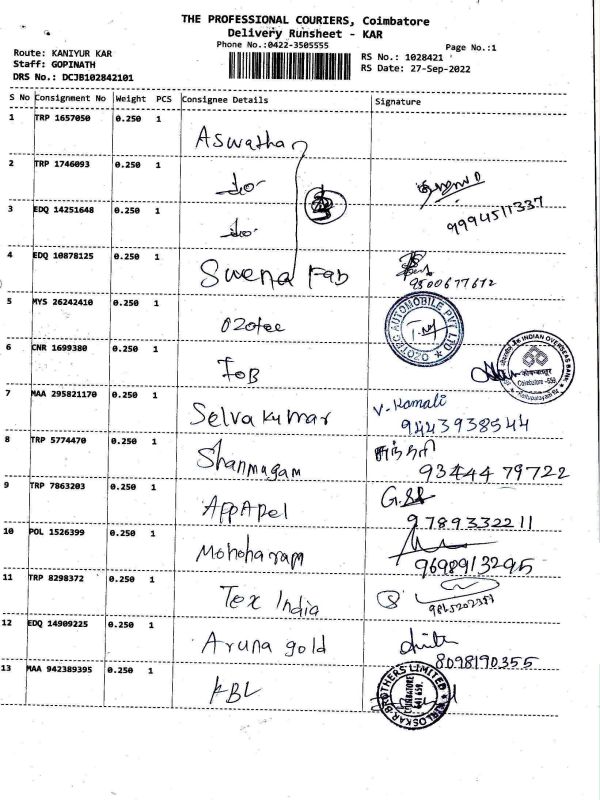 THE PROFESSIONAL COURIERS, Coimbatore
Delivery Runsheet - KAR
Phone No.:0422-3505555
Page No.:1
Route: KANIYUR KAR
Staff: GOPINATH
DRS No.: DC3B102842101
RS No.: 1028421
RS Date: 27-Sep-2022
S No Consignment No Weight PCS Consignee Details Signature
1 TRP 1657050 0.250 1 Aswathan
2 TRP 1746093 0.250 1 do
3 EDQ 14251648 0.250 1 do 9994511337
4 EDQ 10878125 0.250 1 Swena Fab 9500677672
5 MYS 26242410 0.250 1 Ozotec OZOTEC AUTOMOBILE PVT LTD
6 CNR 1699380 0.250 1 IOB INDIAN OVERSEAS BANK
7 MAA 295821170 0.250 1 Selvakumar V. Kamali
9443938544
8 TRP 5774470 0.250 1 Shanmugam
93444 79722
9 TRP 7863203 0.250 1 Appapel
9789332211
10 POL 1526399 0.250 1
9698913295
11 TRP 8298372 0.250 1 Tex India
12 EDQ 14909225 0.250 1 Aruna gold
8098190355
13 MAA 942389395 0.250 1 KBL KIRLOSKAR BROTHERS LIMITED